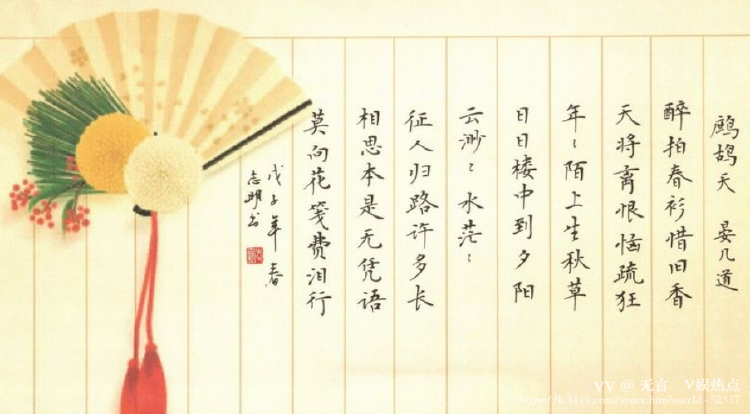 鹧鸪天 晏几道
醉拍春衫惜旧香
天将离恨恼疏狂
年〻陌上生秋草
日日楼中到夕阳
云渺〻水茫〻
征人归路许多长
相思本是无凭语
莫向花笺费泪行
戊子年春
志明书
VV @ 无言 V娱热点